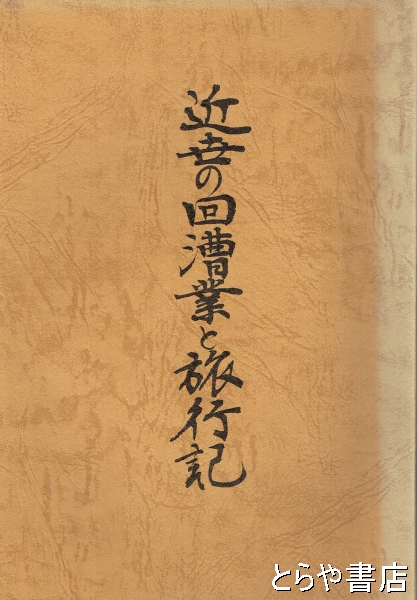 近幸の回漕業と旅行記
とらや書店